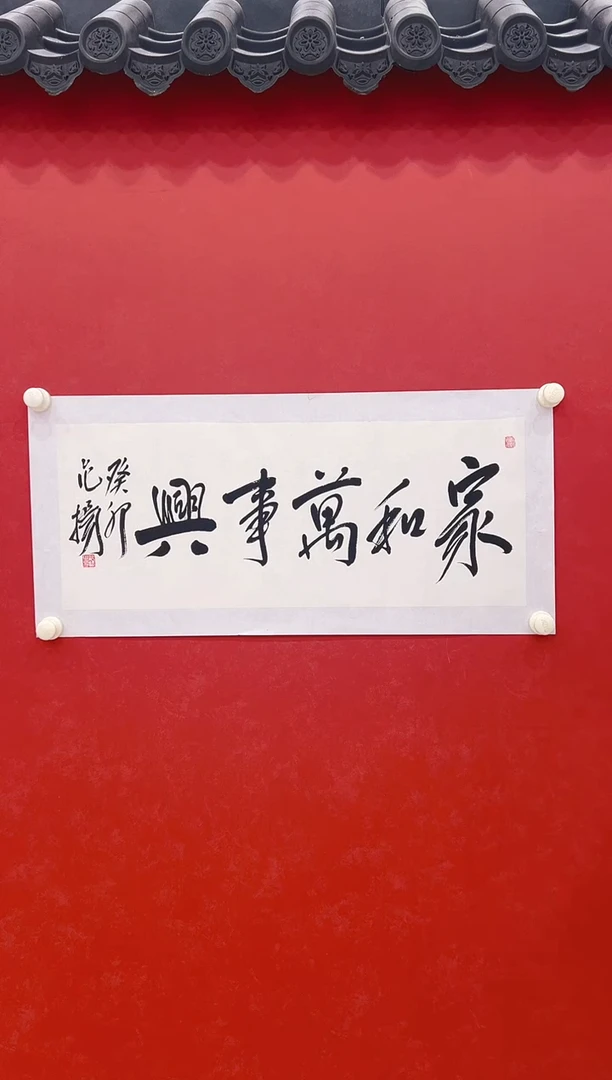 家和萬事興
癸卯